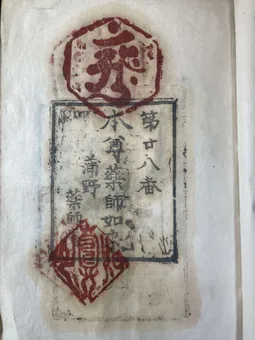 第廿八番
本尊薬師如来
蒲野
薬師